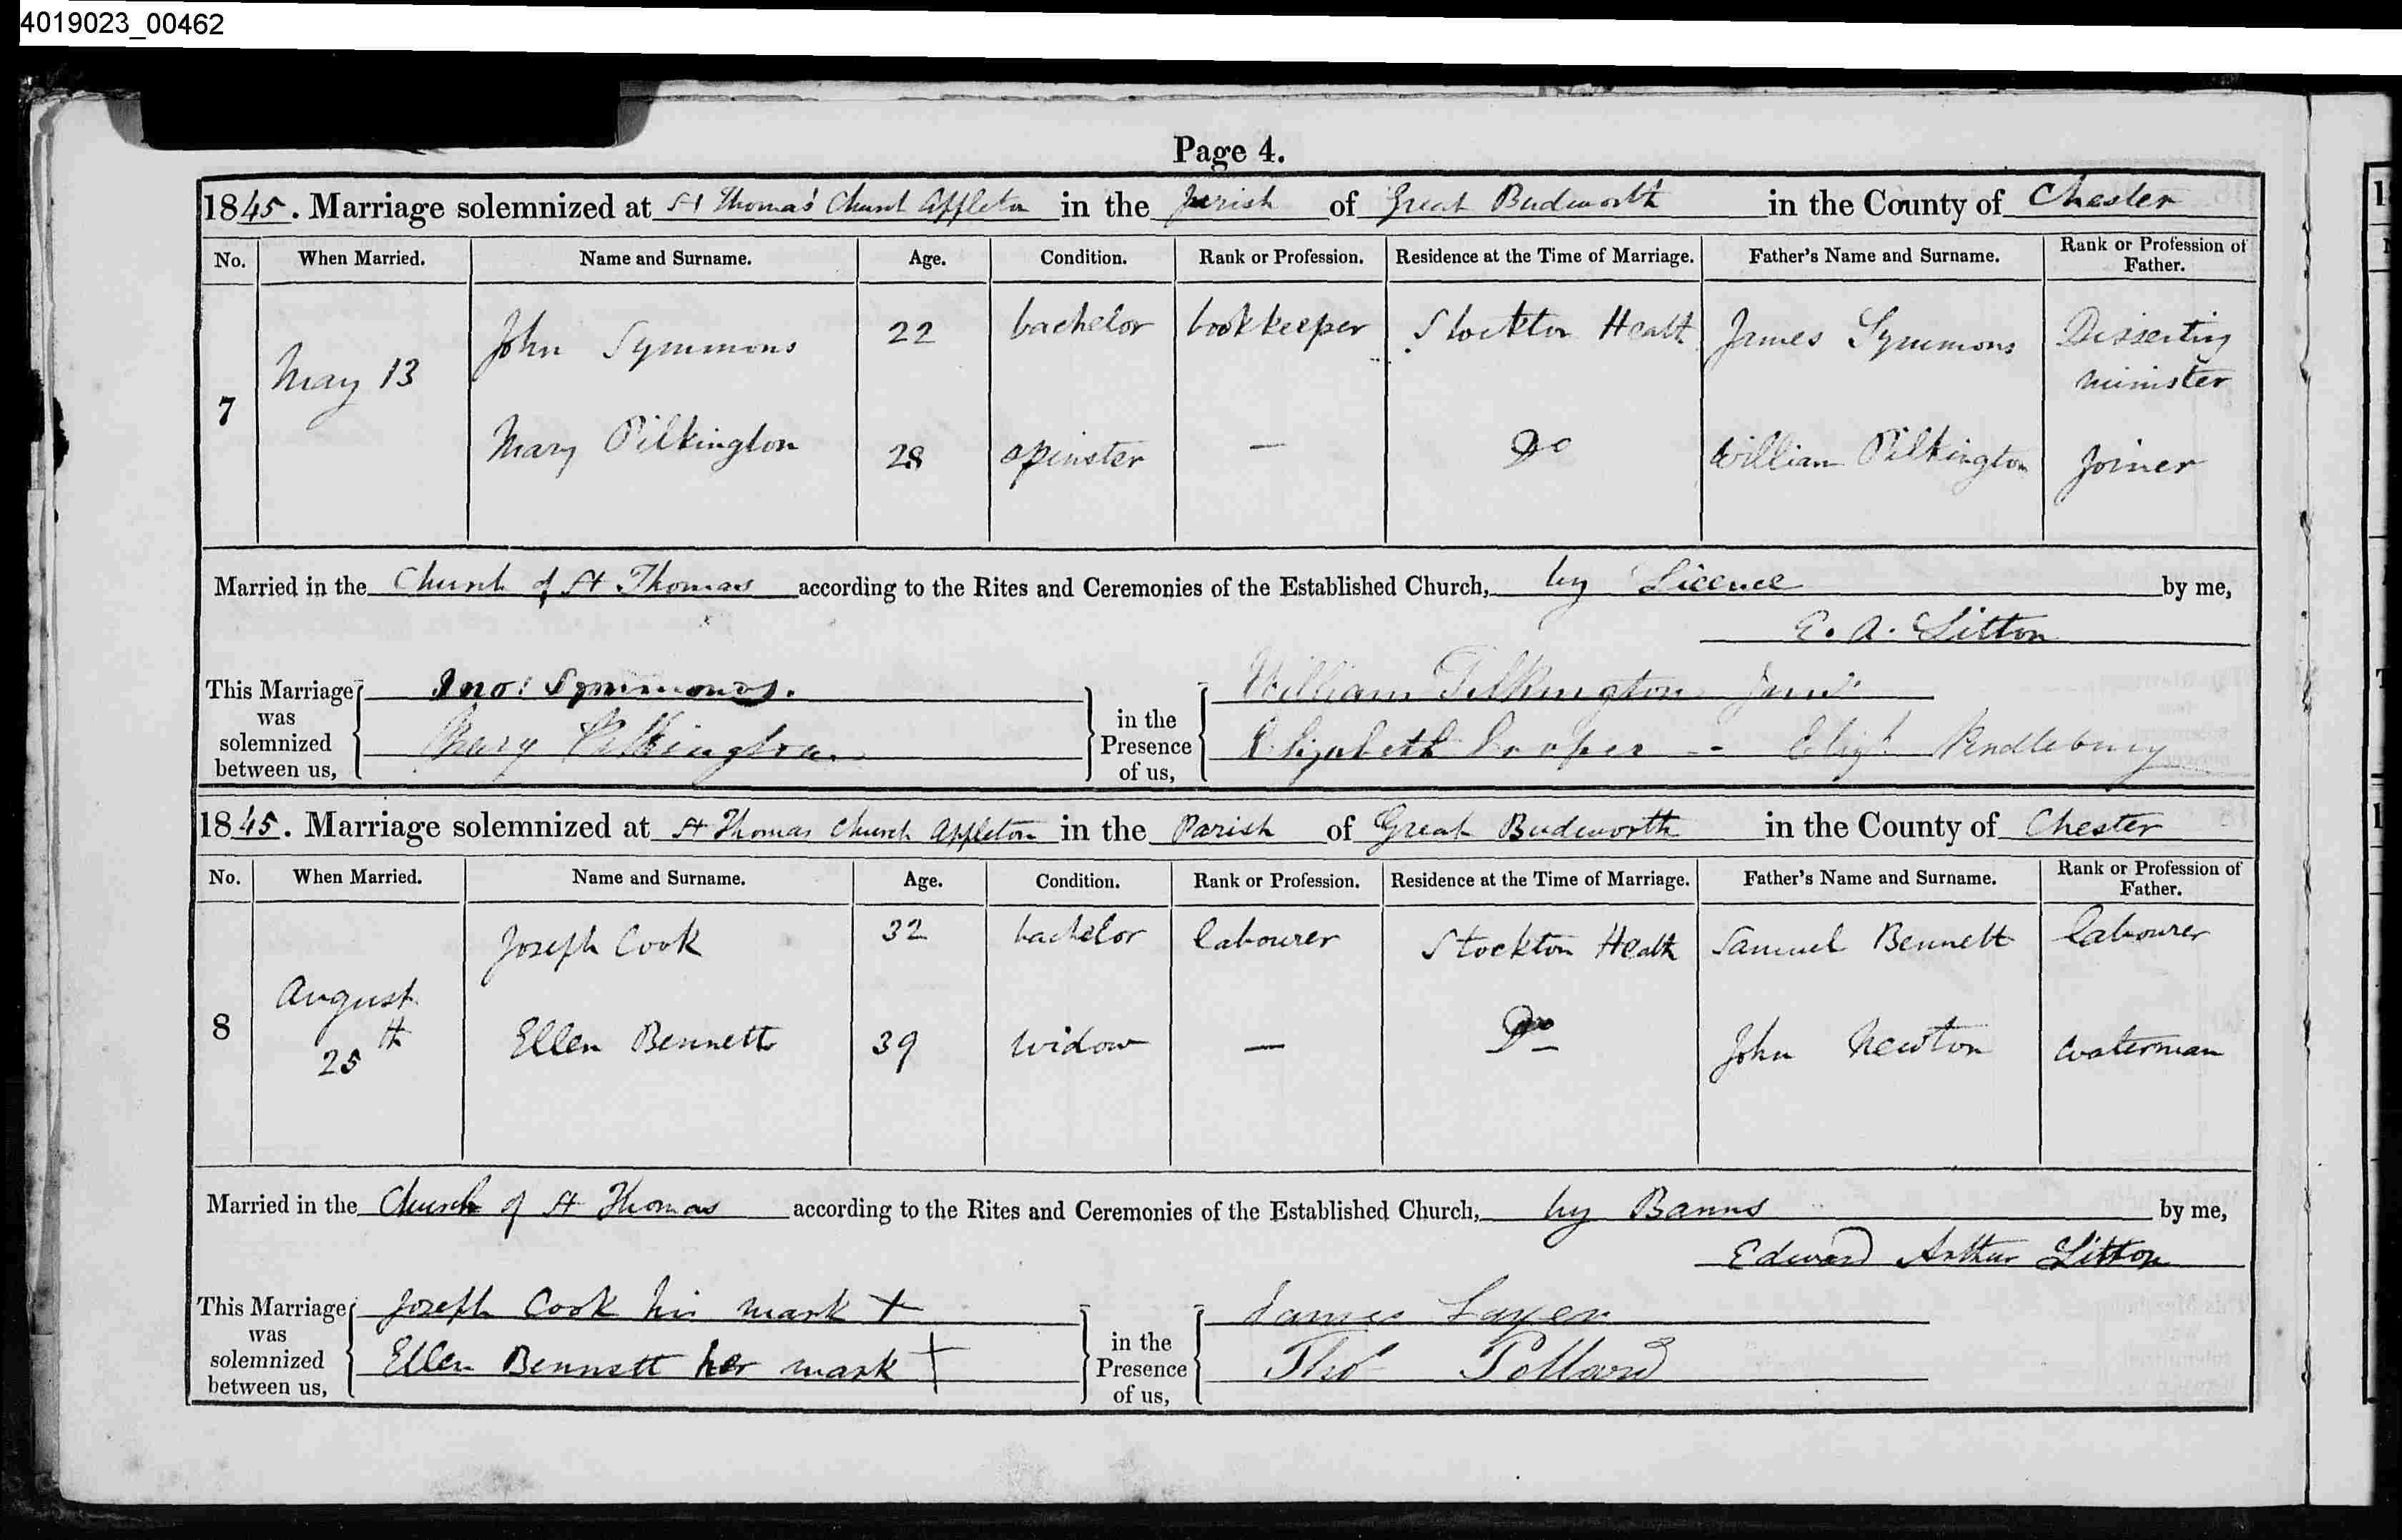 4019023_00462
Page 4.
1845. Marriage solemnized at St Thomas' Church Appleton in the parish of Great Budworth in the County of Chester
No. When Married. Name and Surname. Age. Condition. Rank or Profession. Residence at the Time of Marriage. Father's Name and Surname. Rank or Profession of Father.
7 May 13 John Symmons 22 bachelor bookkeeper Stockton Heath James Symmons Dissenting minister
Mary Pilkington 28 spinster — Do William Pilkington Joiner
Married in the Church of St Thomas according to the Rites and Ceremonies of the Established Church, by Licence by me,
E. A. Litton
This Marriage was solemnized between us, Jno: Symmons. in the Presence of us, William Pilkington Junr
Mary Pilkington Elizabeth -- Elizh Pendlebury
1845. Marriage solemnized at St Thomas Church Appleton in the Parish of Great Budworth in the County of Chester
No. When Married. Name and Surname. Age. Condition. Rank or Profession. Residence at the Time of Marriage. Father's Name and Surname. Rank or Profession of Father.
8 August 25th Joseph Cook 32 bachelor labourer Stockton Heath Samuel Bennett labourer
Ellen Bennett 39 widow — Do John Newton waterman
Married in the Church of St Thomas according to the Rites and Ceremonies of the Established Church, by Banns by me,
Edward Arthur Litton
This Marriage was solemnized between us, Joseph Cook his mark + in the Presence of us, James
Ellen Bennett her mark + Thos Pollard